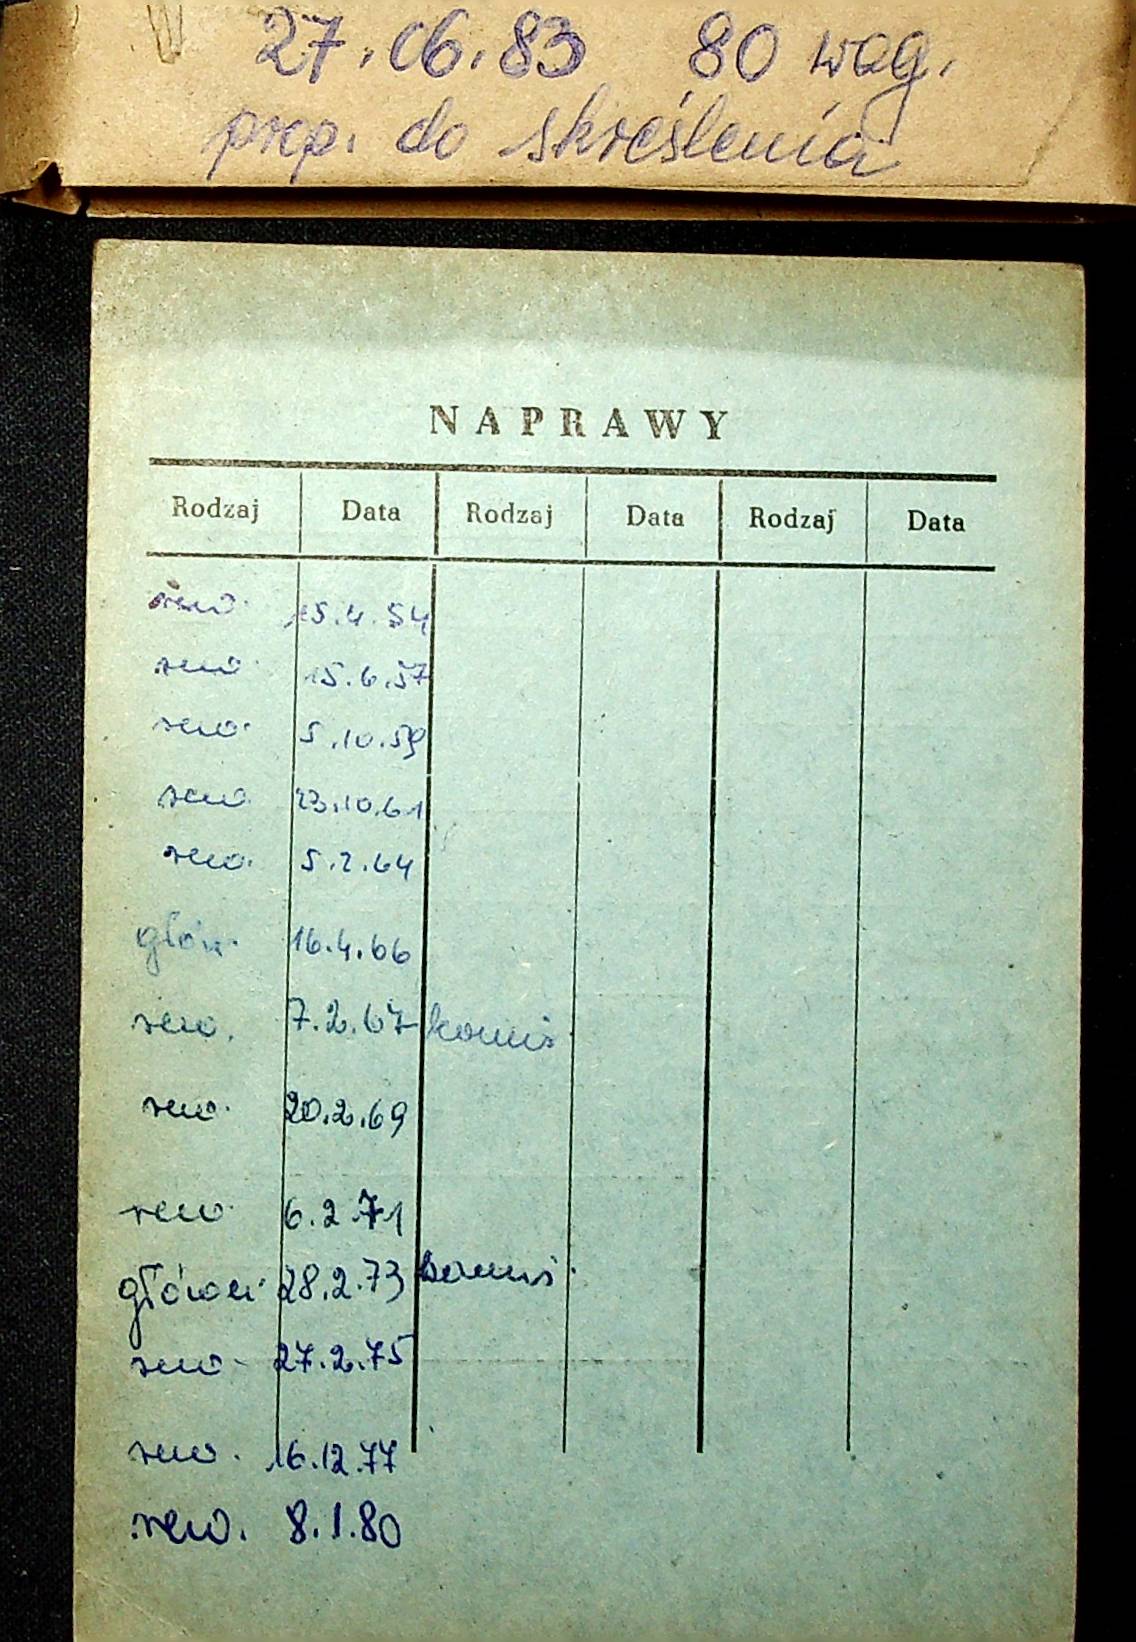 27.06.83 80 wag.
prep. do skreślenia
NAPRAWY
Rodzaj Data Rodzaj Data Rodzaj Data
rew. 15.4.54
rew. 15.6.57
rew. 5.10.59
rew. 23.10.61
rew. 5.2.64
głów. 16.4.66
rew. 7.2.67 komis
rew. 20.2.69
rew. 6.2.71
główn. 28.2.73 komis.
rew. 27.2.75
rew. 16.12.77
rew. 8.1.80